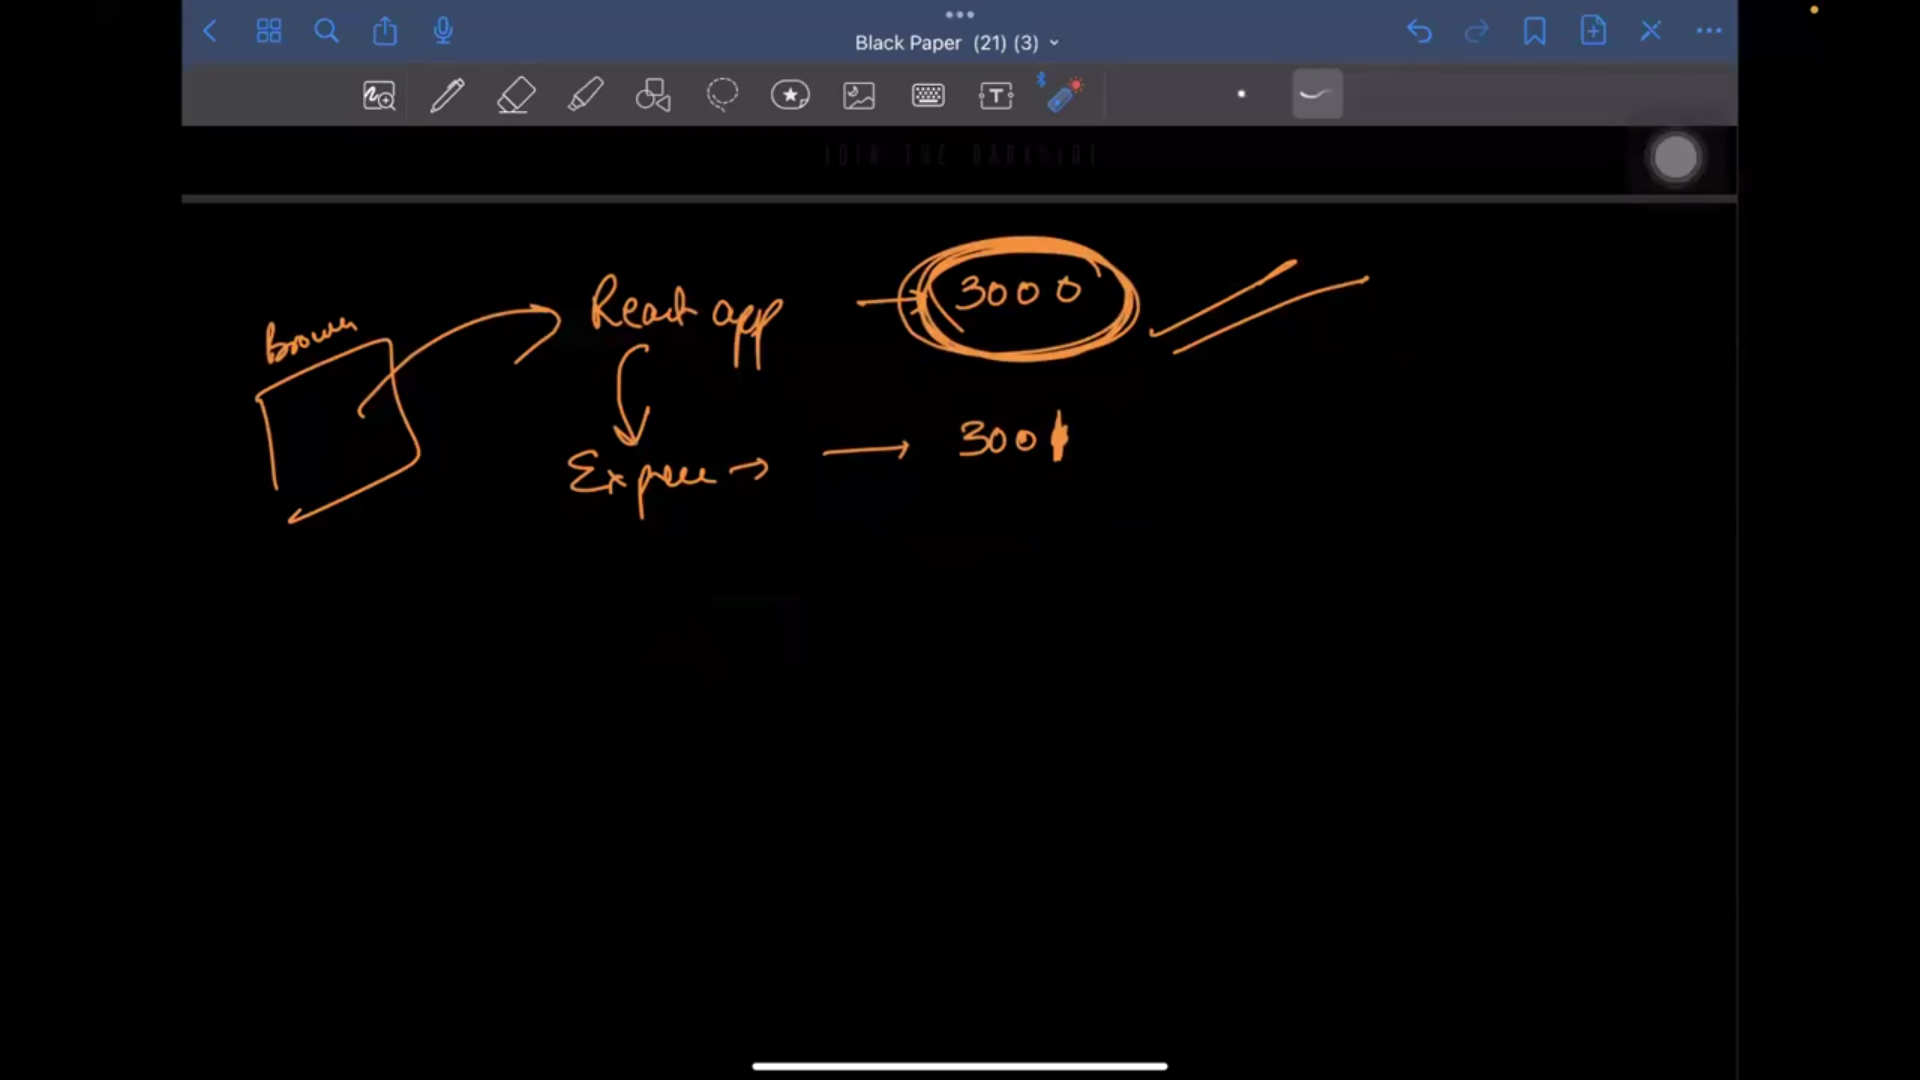 Black Paper (21) (3)
JOIN THE DARKSIDE
Browser
React app → 3000
Express → → 3001